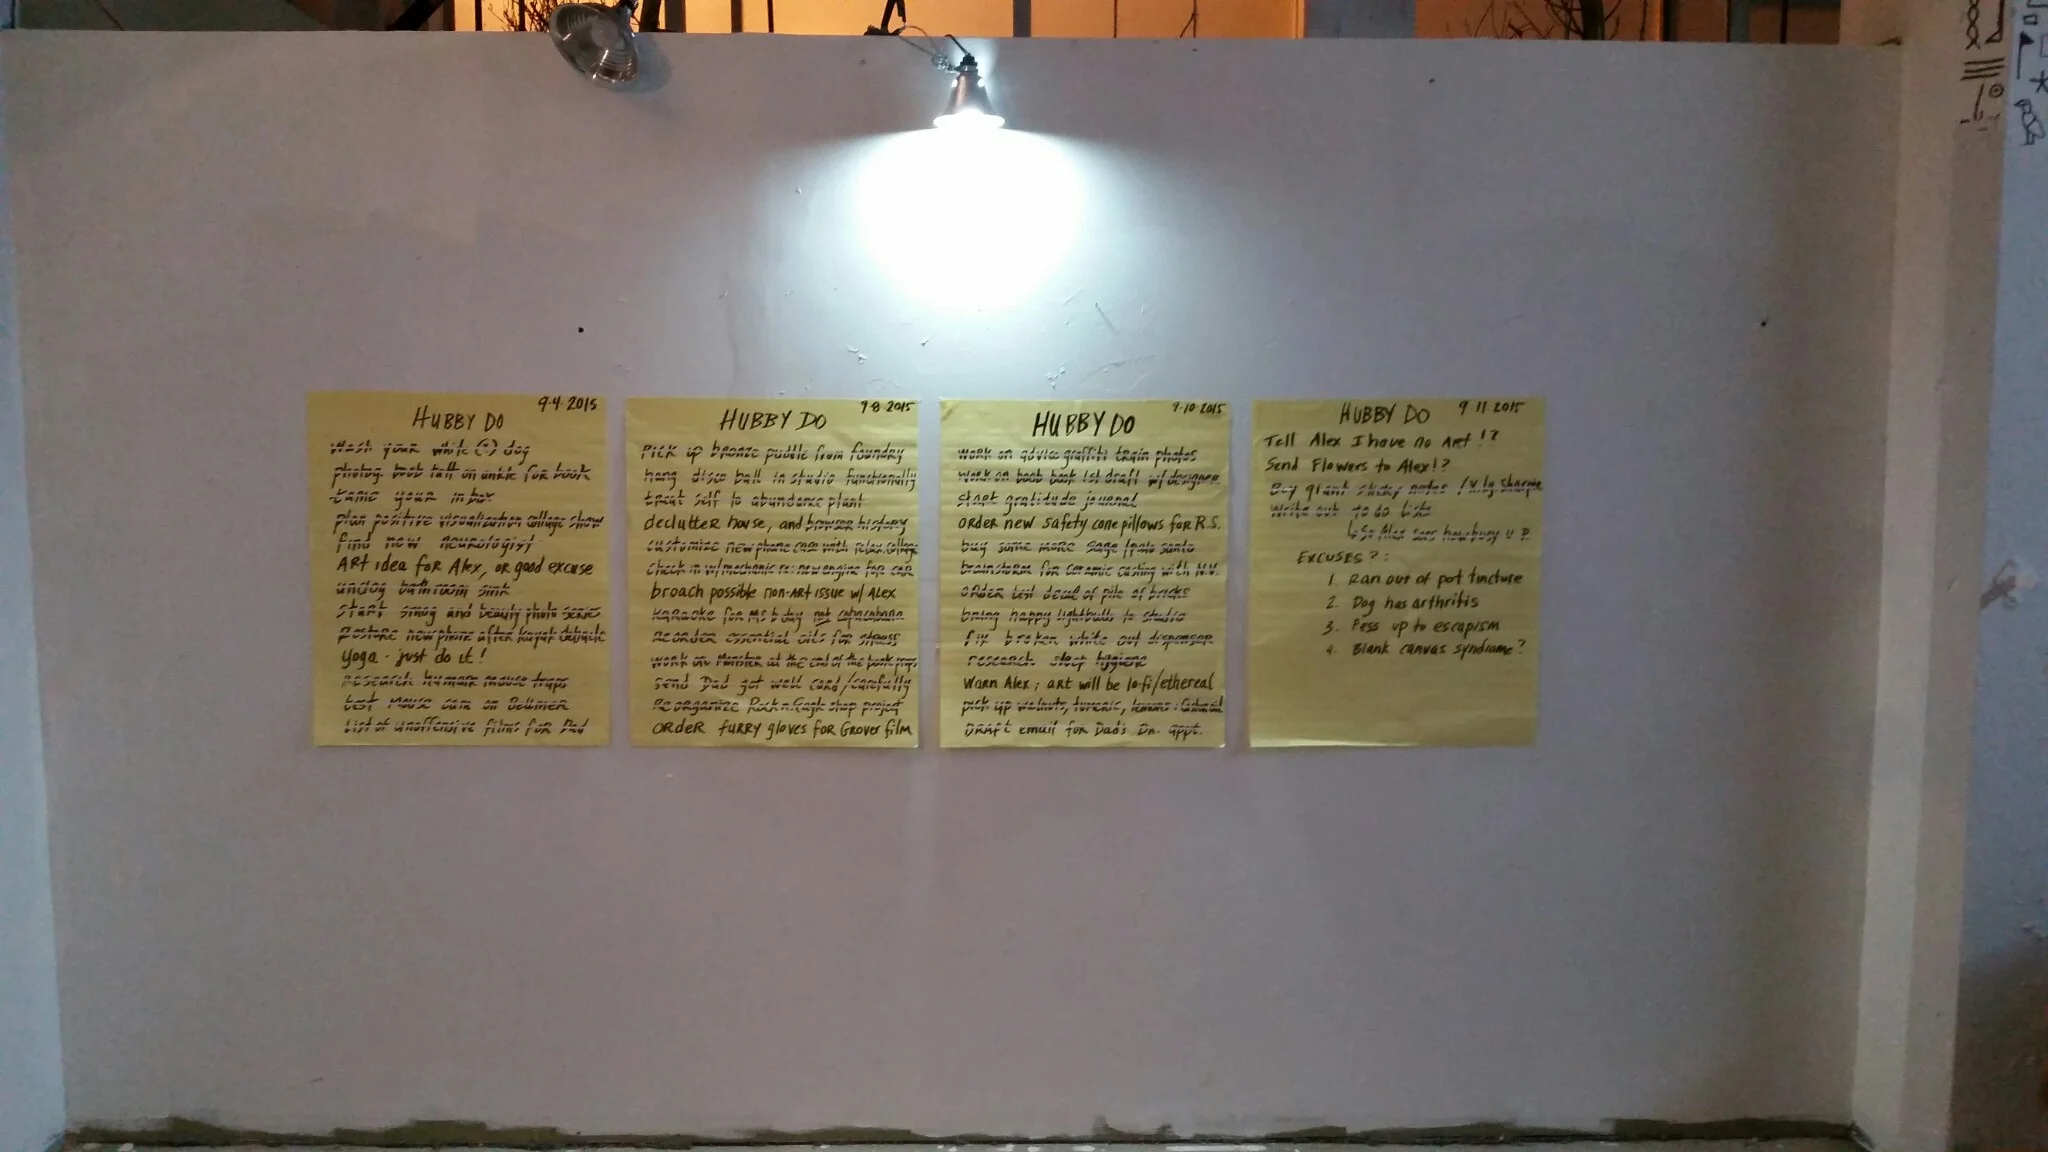 HUBBY DO 9·4·2015
Wash your white (?) dog
photog boob tatt on unkle for book
tame your in box
plan positive visualization collage show
find new neurologist
ART idea for Alex, or good excuse
unclog bathroom sink
start smog and beauty photo series
Restore new phone after kayak debacle
Yoga - just do it!
research humane mouse traps
test mouse cam on Bellmer
List of unoffensive films for Dad
HUBBY DO 9·8·2015
PICK up bronze puddle from foundry
hang disco ball in studio functionally
treat self to abundance plant
declutter house, and browser history
customize new phone case with relax collage
check in w/mechanic re: new engine for car
broach possible non-art issue w/ Alex
Karaoke for Ms b day not copacabana
Reorder essential oils for stress
work on Monster at the end of the book
send Dad get well card/carefully
Re organize Rock n Eagle shop project
order furry gloves for Grover film
HUBBY DO 9·10·2015
work on advice graffiti train photos
work on boob book 1st draft w/designer
start gratitude journal
order new safety cone pillows for R.S.
buy some more sage/palo santo
brainstorm for ceramic casting with N.V.
order test decal of pile of bricks
bring happy lightbulbs to studio
fix broken white out dispenser
research sleep hygiene
Warn Alex; art will be lo-fi/ethereal
pick up walnuts, tumeric, lemons
DRAFT email for Dad's Dr. appt.
HUBBY DO 9 11 2015
Tell Alex I have no Art!?
Send Flowers to Alex!?
Buy giant sticky notes /x lg. sharpie
Write out to do lists
So Alex sees how busy U R
EXCUSES?:
1. Ran out of pot tincture
2. Dog has arthritis
3. Fess up to escapism
4. Blank canvas syndrome?